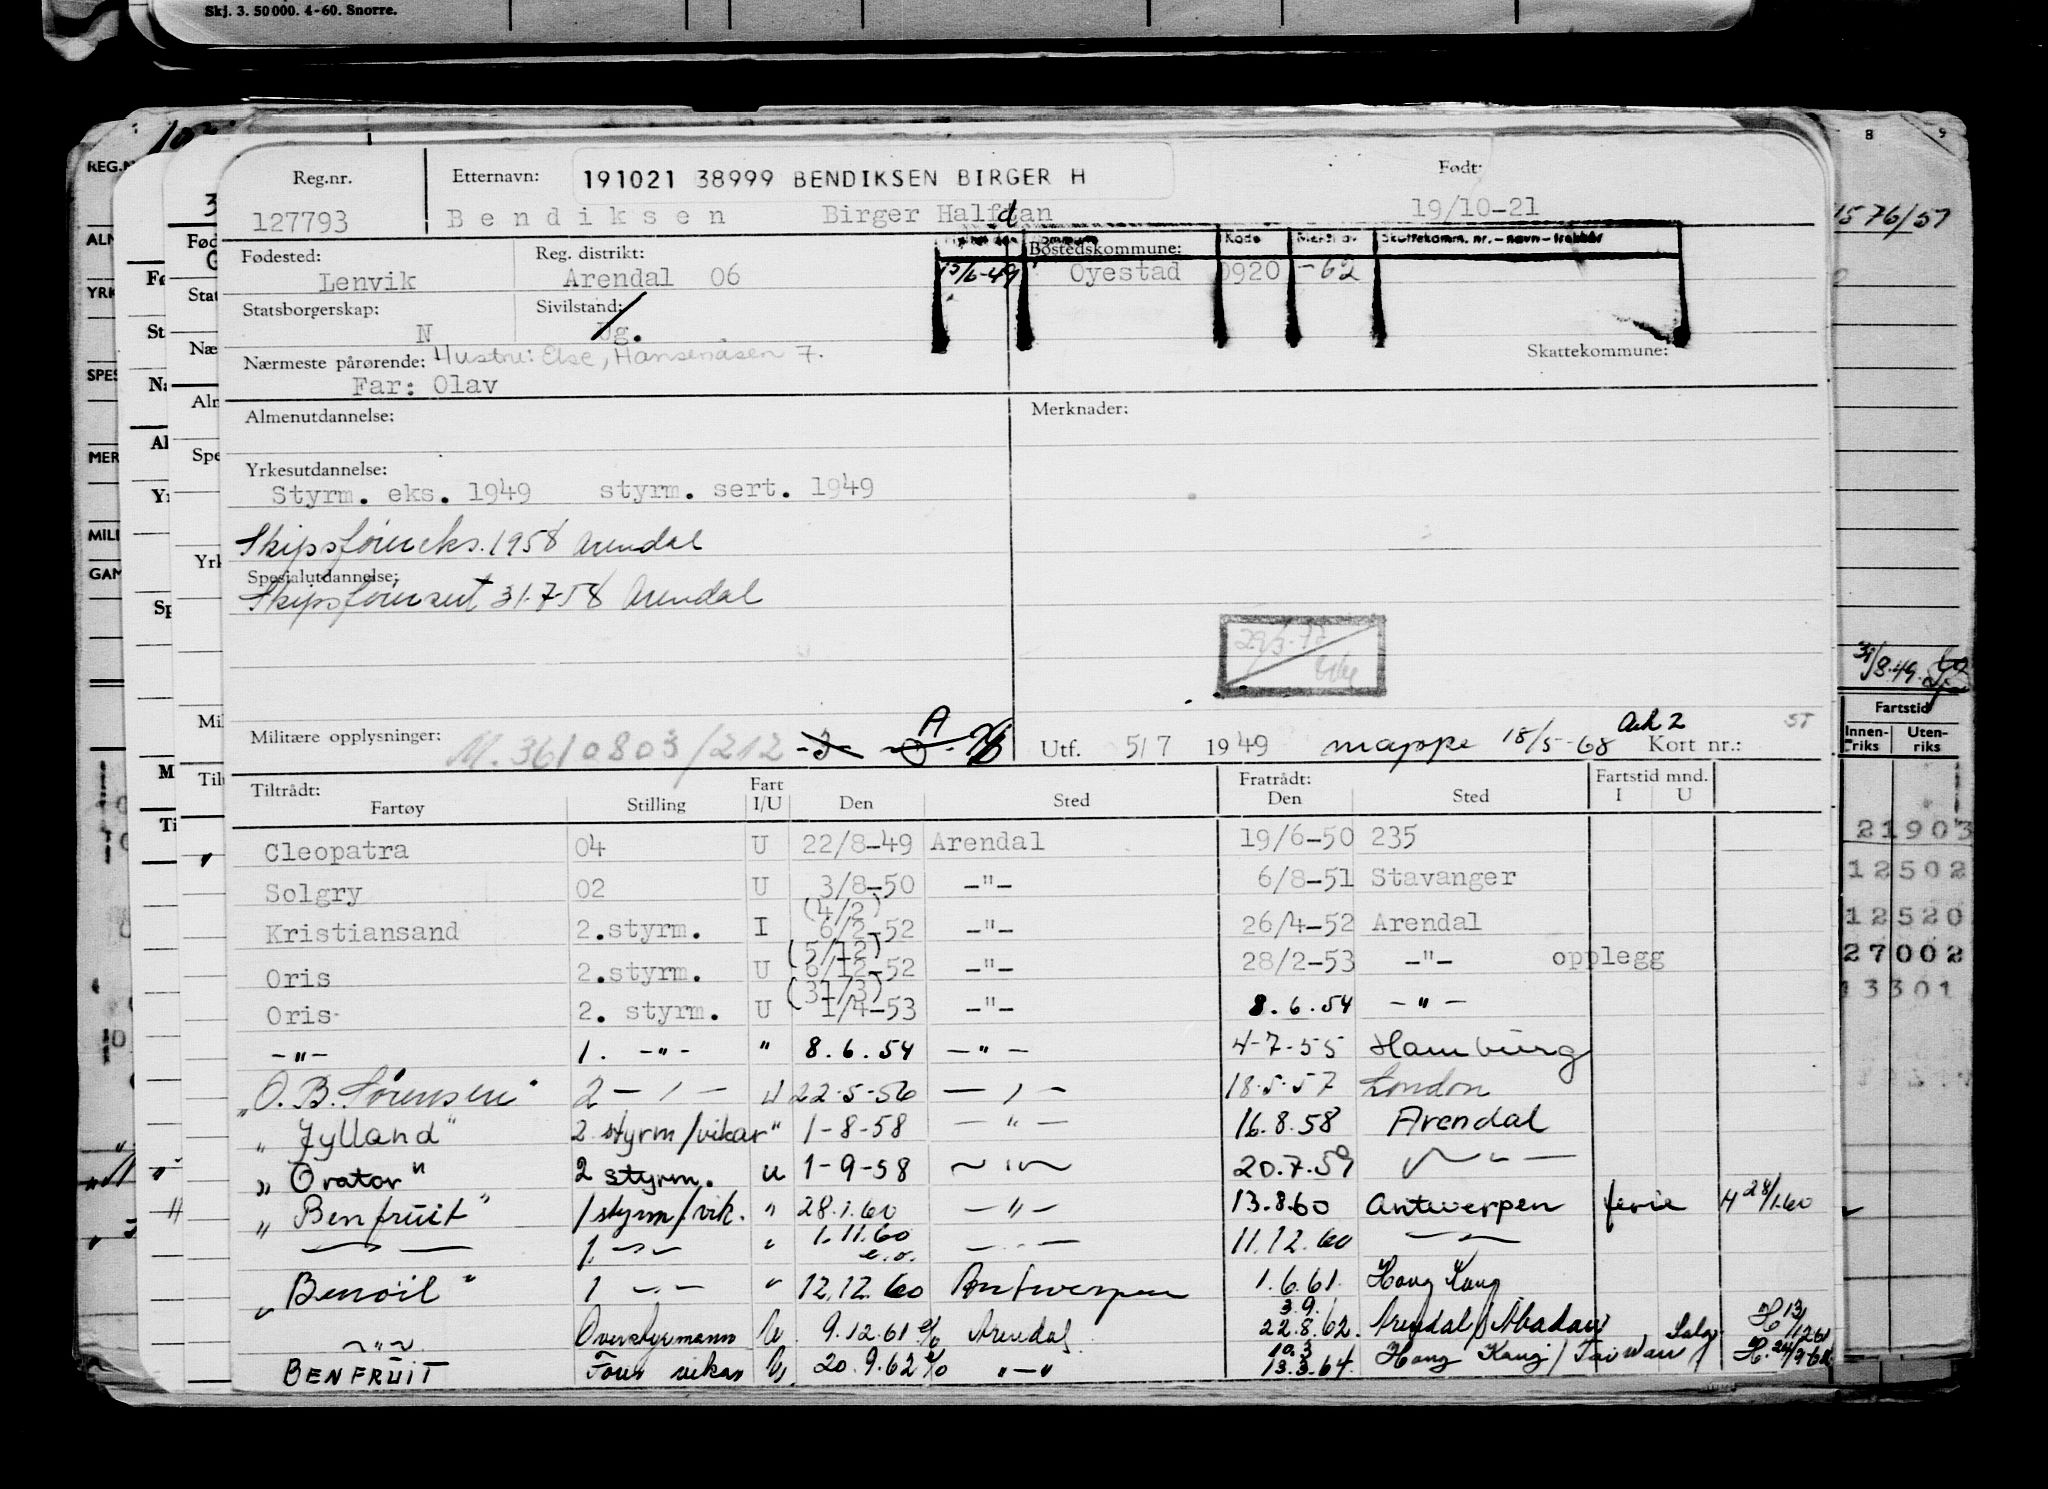 Skj. 3. 50 000. 4-60. Snorre.
Reg.nr. Etternavn: 191021 38999 BENDIKSEN BIRGER H Født:
127793 Bendiksen Birger Halfdan 19/10-21
Fødested: Reg. distrikt: Bostedskommune: Kode Merknad Skattekomm. nr. – navn – trekkår
Lenvik Arendal 06 15/6-49 Øyestad 0920 -62
Statsborgerskap: Sivilstand:
N Ug.
Nærmeste pårørende: Hustru: Else, Hansenåsen 7. Skattekommune:
Far: Olav
Almenutdannelse: Merknader:
Yrkesutdannelse:
Styrm. eks. 1949 styrm. sert. 1949
Skipsførereks. 1958 Arendal
Spesialutdannelse:
Skipsførersert 31.7.58 Arendal
29/3-77
Militære opplysninger: M. 3610803/212 -3- A Utf. 5/7 1949 mappe 18/5-68 Ark 2 Kort nr.: ST
Tiltrådt: Fart Fratrådt: Fartstid mnd.
Fartøy Stilling I/U Den Sted Den Sted I U
Cleopatra 04 U 22/8-49 Arendal 19/6-50 235
Solgry 02 U 3/8-50 -"- 6/8-51 Stavanger
(4/2)
Kristiansand 2.styrm. I 6/2-52 -"- 26/4-52 Arendal
(5/12)
Oris 2.styrm. U 6/12-52 -"- 28/2-53 -"- opplegg
(31/3)
Oris 2. styrm. U 1/4-53 -"- 8.6.54 -"-
-"- 1. -"- " 8.6.54 -"- 4-7-55 Hamburg
"O. B. Sørensen" 2 -"- U 22-5-56 -"- 18.5.57 London
"Jylland" 2 styrm/vikar " 1-8-58 -"- 16.8.58 Arendal
"Orator" 2 styrm. u 1-9-58 -"- 20.7.59 -"-
"Benfruit" 1 styrm/vik. " 28.1.60 -"- 13.8.60 Antwerpen ferie H 28/1.60
-"- 1. -"- " 1.11.60 e.o. -"- 11.12.60 -"-
"Benoil" 1 -"- " 12.12.60 Antwerpen 1.6.61 Hong Kong
-"- Overstyrmann U. 9.12.61 e/o Arendal 3.9. 22.8.62. Arendal/Abadan H 13/11 261
BENFRUIT Fører vikar U. 20.9.62 e/o "-" 10.3 13.3.64. Hong Kong/Taiwan Salg
REG.N
ALN
YRK
SPES
MER
MILI
GAM
8 9
1576/57
31/8.49.
Fartstid
Innenriks Utenriks
21903
12502
12520
27002
13301